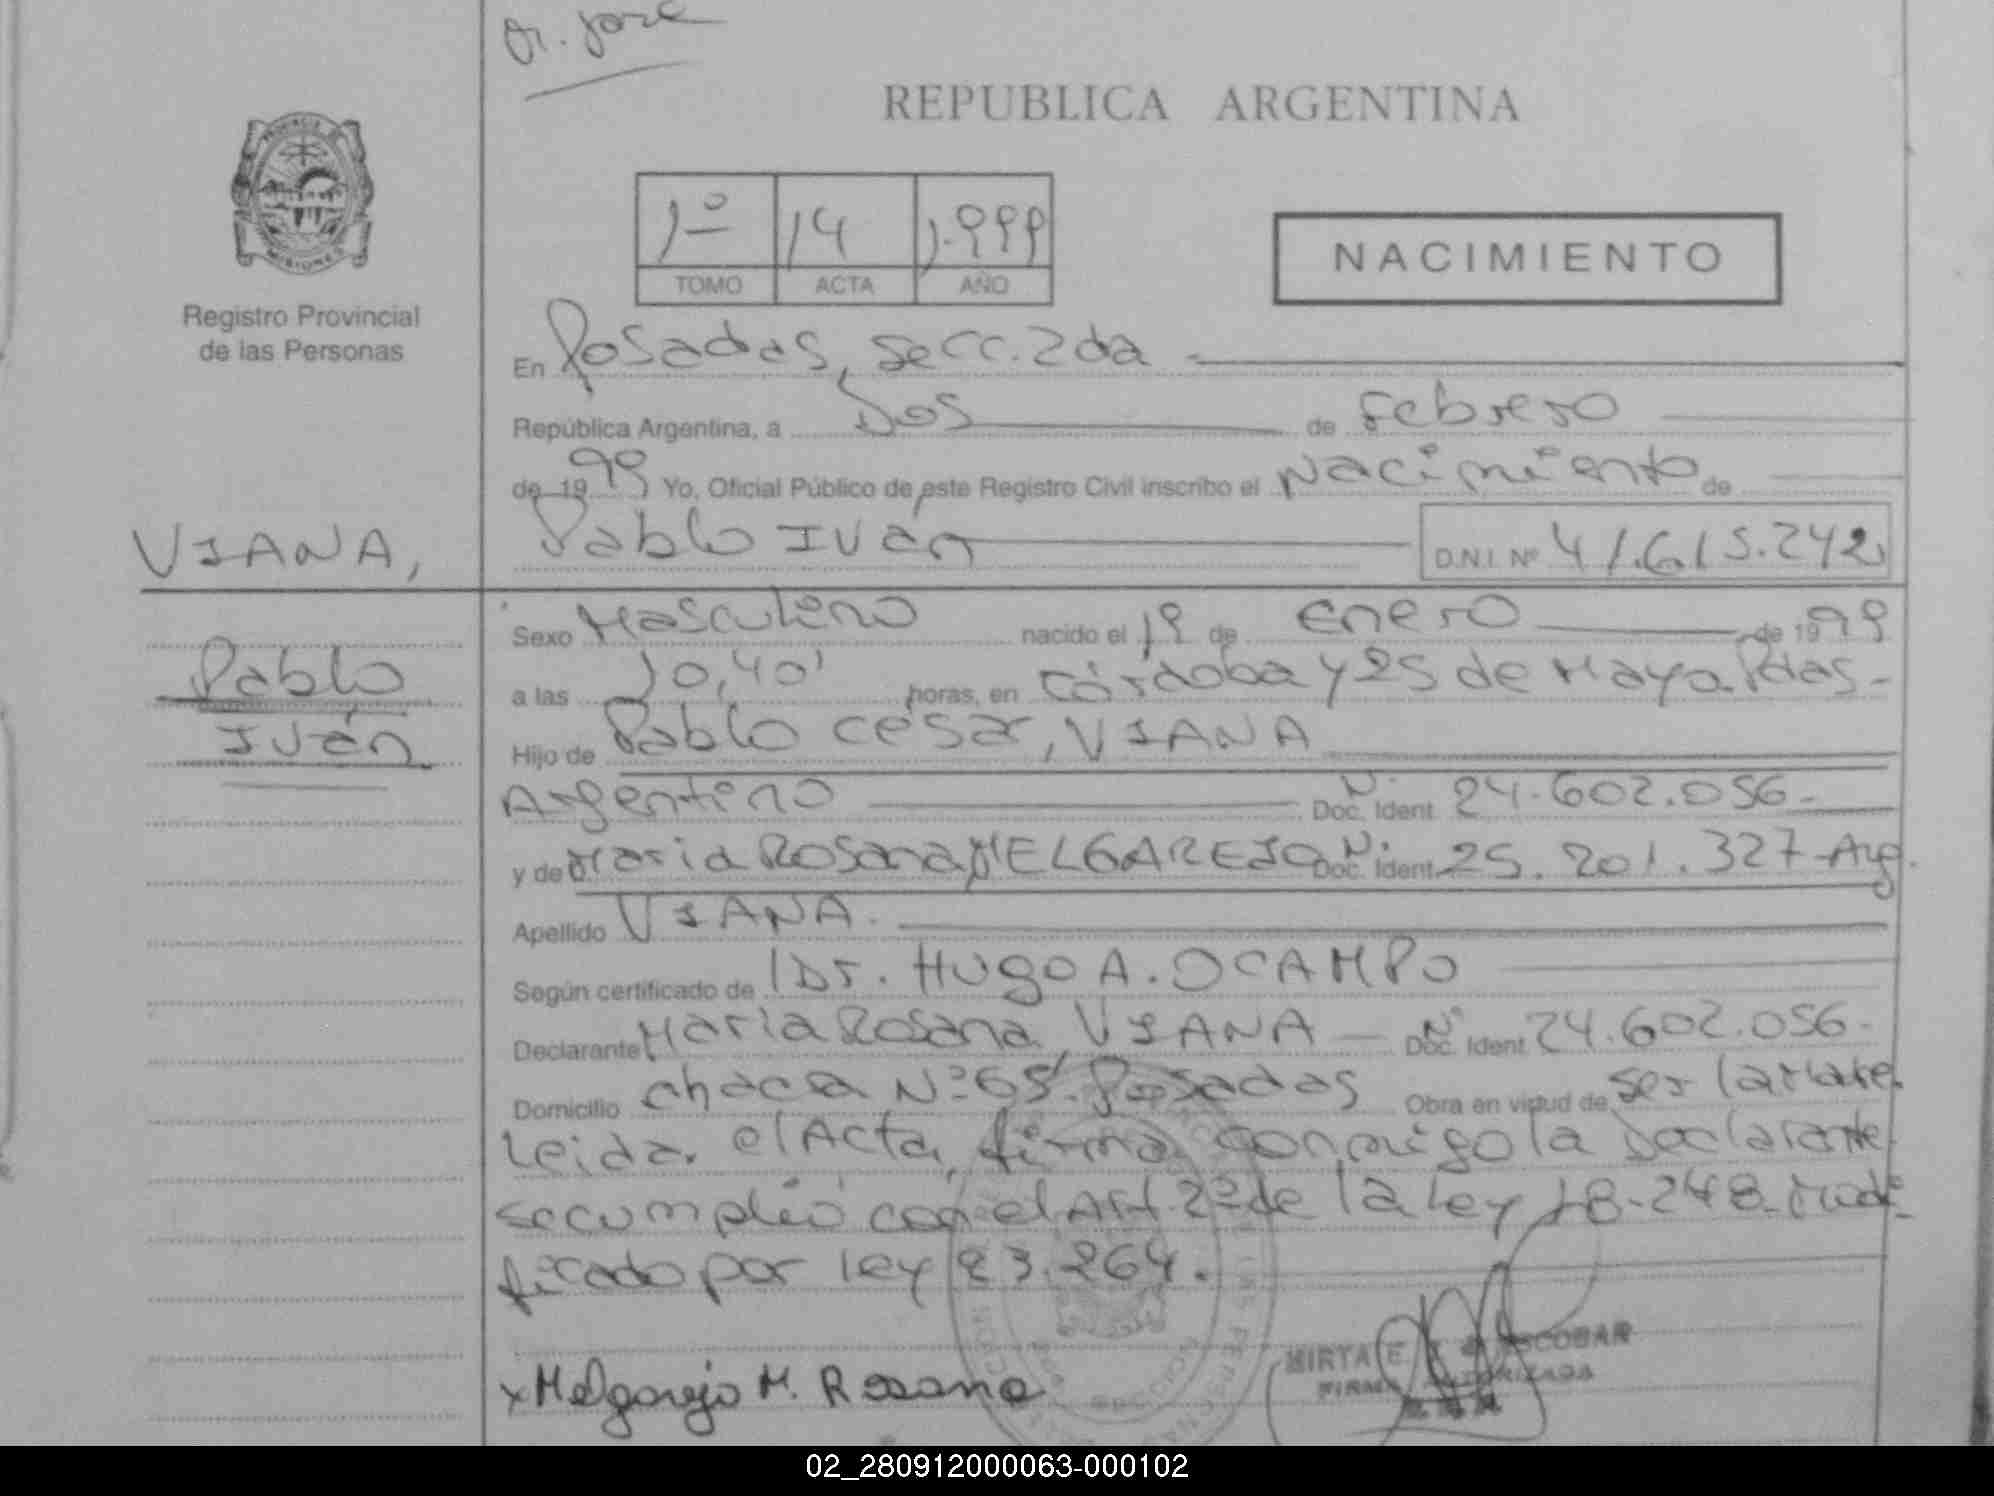 Dr. Jose
REPUBLICA ARGENTINA
PROVINCIA DE
MISIONES
1º 14 1.999
TOMO ACTA AÑO
NACIMIENTO
Registro Provincial
de las Personas
En Posadas, secc. 2da
República Argentina, a Dos de Febrero
de 1999 Yo, Oficial Público de este Registro Civil inscribo el Nacimiento de
VIANA, Pablo Iván D.N.I. Nº 41.615.242
Sexo Masculino nacido el 19 de Enero de 1999
Pablo
a las 10,40' horas, en Córdoba y 25 de Mayo Pdas-
Iván
Hijo de Pablo César, VIANA
Argentino Nº Doc. Ident. 24.602.056-
y de Maria Rosana MELGAREJO Nº Doc. Ident. 25.201.327-Arg.
Apellido VIANA.
Según certificado de Dr. HUgO A. OCAMPO
Declarante Maria Rosana VIANA Nº Doc. Ident. 24.602.056-
Domicilio chacra Nº 65. Posadas Obra en virtud de ser la madre.
Leida el Acta, firma conmigo la Declarante
se cumplió con el Art 2º de la Ley 18-248-modi
ficado por ley 23.264.
x Melgarejo M. Rosana
MIRTA E. ESCOBAR
FIRMA AUTORIZADA
02_280912000063-000102